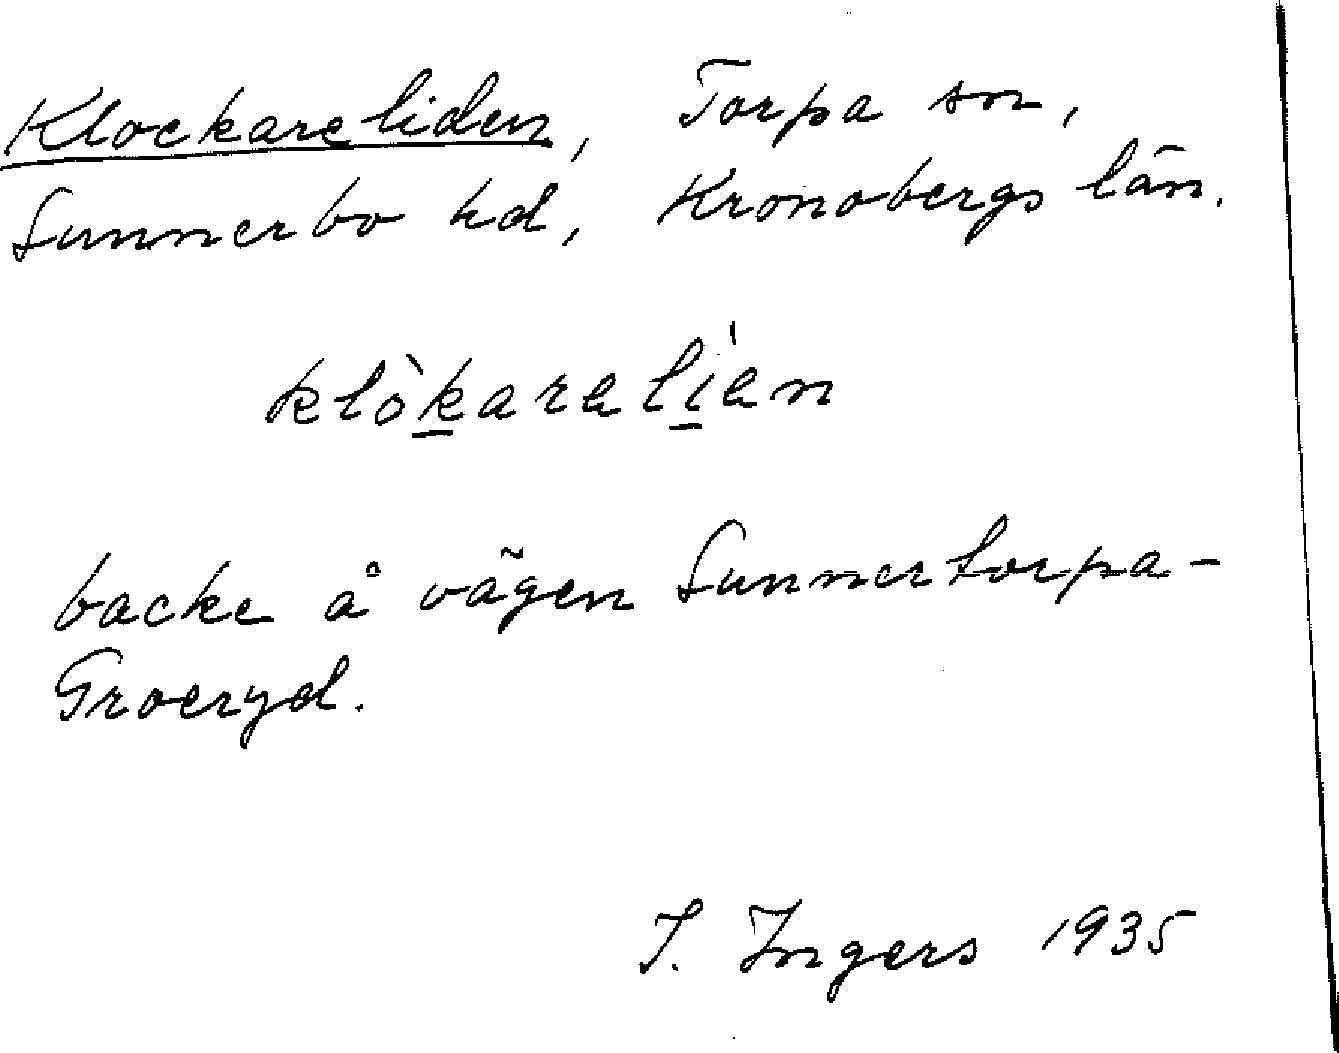 Klockareliden, Torpa sn,
Sunnerbo hd, Kronobergs län.
klòkaraliən
backe å vägen Sunnertorpa-
Groeryd.
I. Ingers 1935